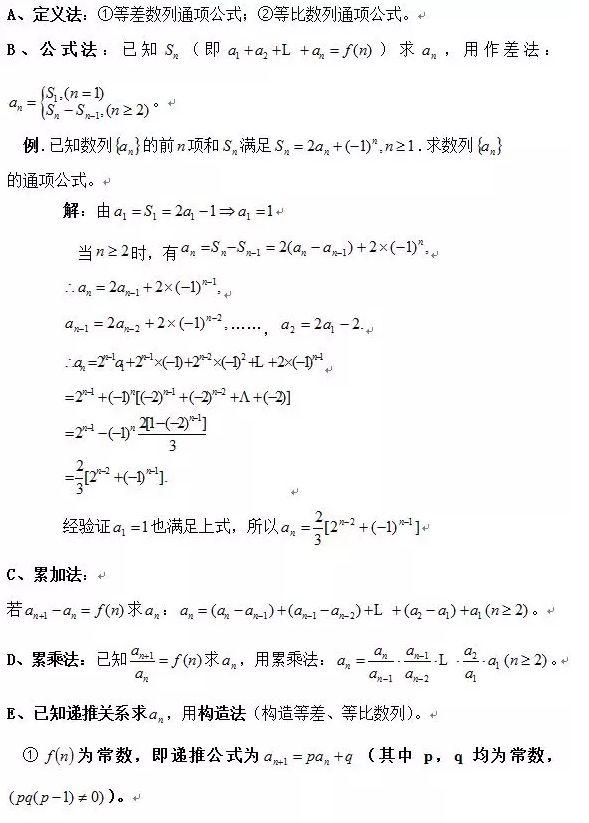 A、定义法：①等差数列通项公式；②等比数列通项公式。
B、公式法：已知 Sₙ（即 a₁+a₂+L +aₙ=f(n)）求 aₙ，用作差法：
aₙ={S₁,(n=1) Sₙ−Sₙ₋₁,(n≥2)。
例.已知数列{aₙ}的前n项和Sₙ满足Sₙ=2aₙ+(−1)ⁿ,n≥1.求数列{aₙ}
的通项公式。
解：由a₁=S₁=2a₁−1⇒a₁=1
当n≥2时，有aₙ=Sₙ−Sₙ₋₁=2(aₙ−aₙ₋₁)+2×(−1)ⁿ,
∴aₙ=2aₙ₋₁+2×(−1)ⁿ⁻¹,
aₙ₋₁=2aₙ₋₂+2×(−1)ⁿ⁻²,……，a₂=2a₁−2.
∴aₙ=2ⁿ⁻¹a₁+2ⁿ⁻¹×(−1)+2ⁿ⁻²×(−1)²+L +2×(−1)ⁿ⁻¹
=2ⁿ⁻¹+(−1)ⁿ[(−2)ⁿ⁻¹+(−2)ⁿ⁻²+Λ+(−2)]
=2ⁿ⁻¹−(−1)ⁿ 2[1−(−2)ⁿ⁻¹]/3
=2/3[2ⁿ⁻²+(−1)ⁿ⁻¹].
经验证a₁=1也满足上式，所以aₙ=2/3[2ⁿ⁻²+(−1)ⁿ⁻¹]
C、累加法：
若aₙ₊₁−aₙ=f(n)求aₙ：aₙ=(aₙ−aₙ₋₁)+(aₙ₋₁−aₙ₋₂)+L +(a₂−a₁)+a₁(n≥2)。
D、累乘法：已知aₙ₊₁/aₙ=f(n)求aₙ，用累乘法：aₙ=aₙ/aₙ₋₁·aₙ₋₁/aₙ₋₂·L ·a₂/a₁·a₁(n≥2)。
E、已知递推关系求aₙ，用构造法（构造等差、等比数列）。
① f(n)为常数，即递推公式为aₙ₊₁=paₙ+q（其中 p，q 均为常数，
(pq(p−1)≠0)）。